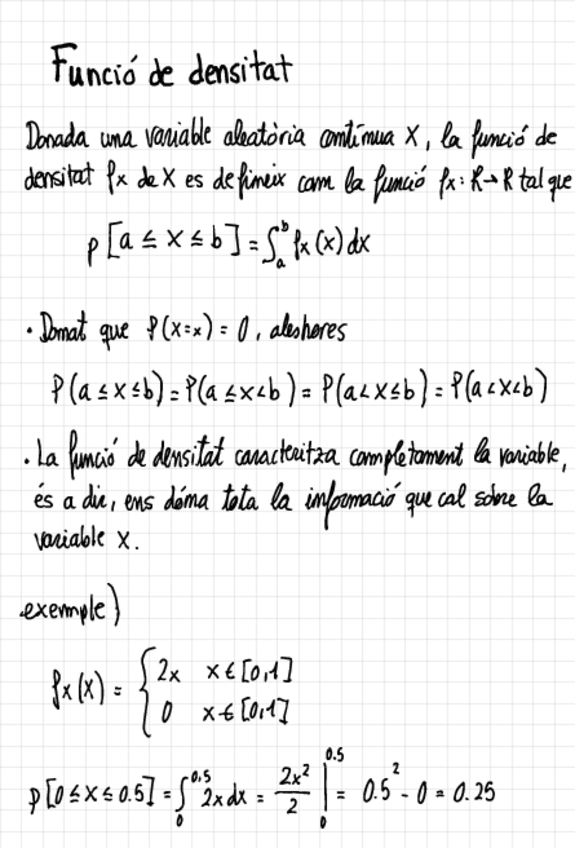 Funció de densitat
Donada una variable aleatòria contínua X, la funció de
densitat fx de X es defineix com la funció fx: R→R tal que
p[a ≤ X ≤ b] = ∫ₐᵇ fx(x) dx
· Donat que P(X=x) = 0, aleshores
P(a ≤ X ≤ b) = P(a ≤ X < b) = P(a < X ≤ b) = P(a < X < b)
· La funció de densitat caracteritza completament la variable,
és a dir, ens dóna tota la informació que cal sobre la
variable X.
exemple)
fx(x) = { 2x x ∈ [0,1]
0 x ∉ [0,1]
p[0 ≤ X ≤ 0.5] = ∫₀^0.5 2x dx = 2x²/2 |₀^0.5 = 0.5² - 0 = 0.25